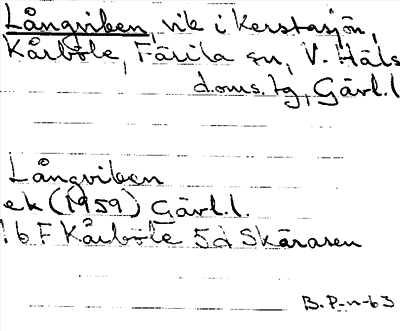 Långviken, vik i Kerstasjön,
Kårböle, Färila sn, V. Häls
doms.tg, Gävl.l
Långviken
ek (1959) Gävl.l.
16 F Kårböle 5d Skärasen
B. P-n-63